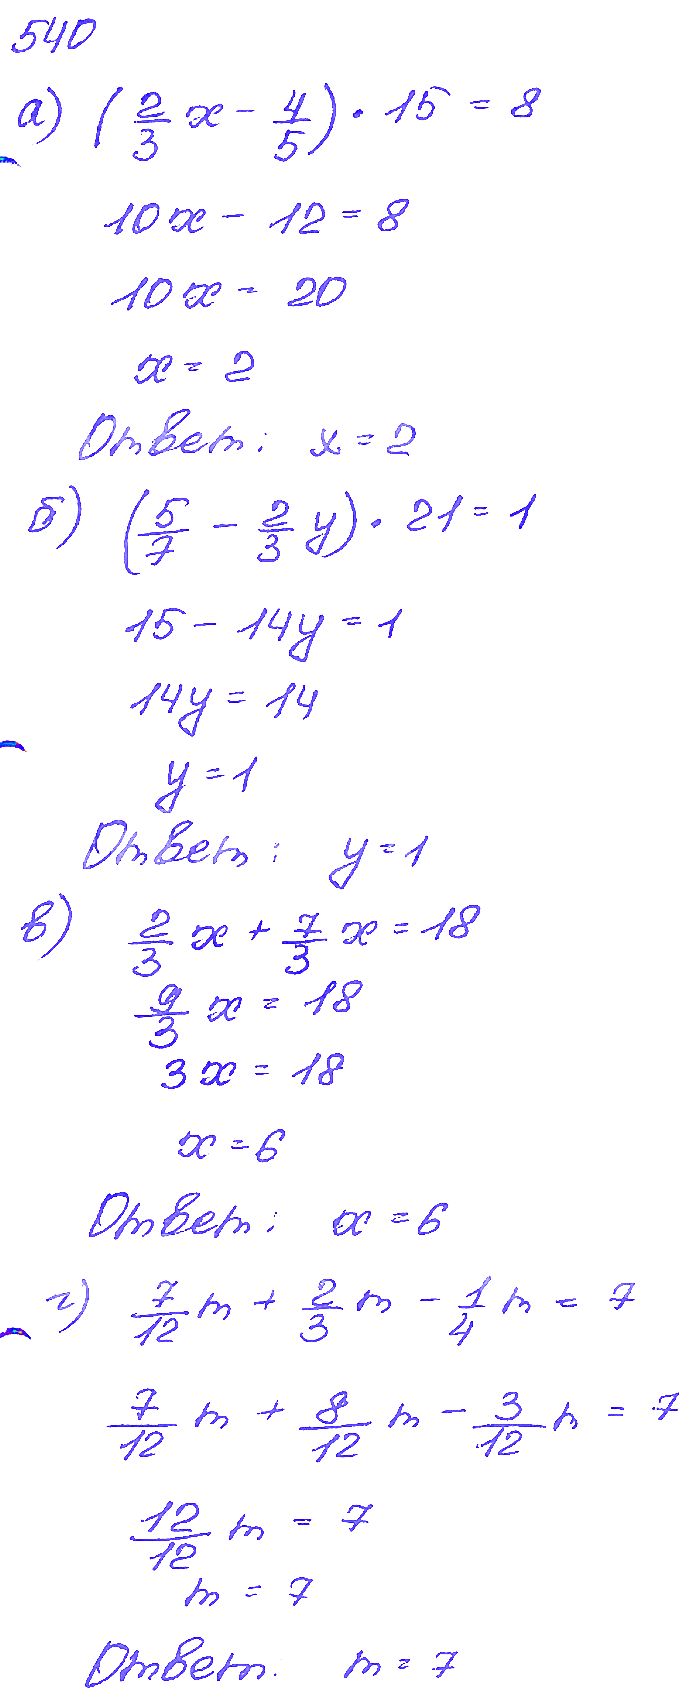 540
а) (2/3 x - 4/5) · 15 = 8
10x - 12 = 8
10x = 20
x = 2
Ответ: x = 2
б) (5/7 - 2/3 y) · 21 = 1
15 - 14y = 1
14y = 14
y = 1
Ответ: y = 1
в) 2/3 x + 7/3 x = 18
9/3 x = 18
3x = 18
x = 6
Ответ: x = 6
г) 7/12 m + 2/3 m - 1/4 m = 7
7/12 m + 8/12 m - 3/12 m = 7
12/12 m = 7
m = 7
Ответ. m = 7